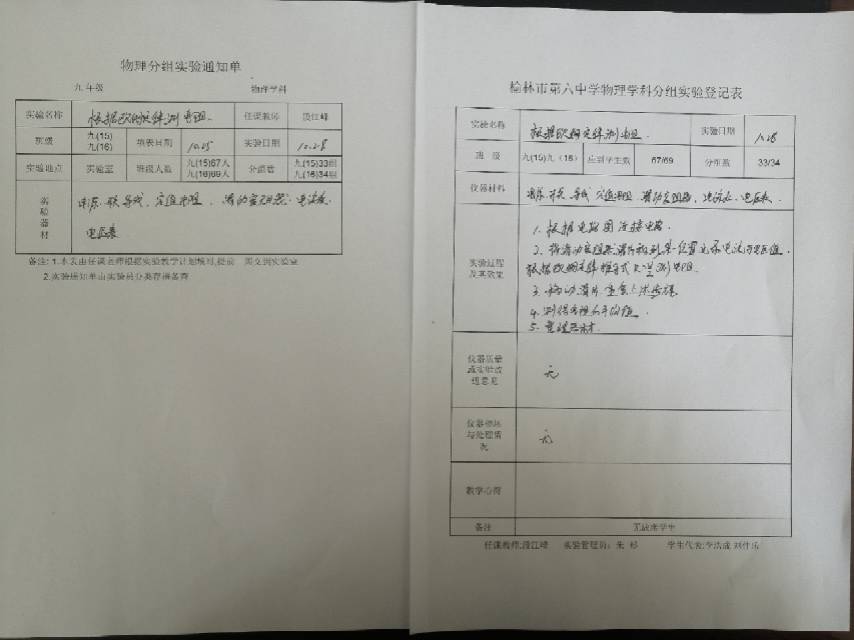 物理分组实验通知单
九年级 物理学科
实验名称 根据欧姆定律测电阻. 任课教师
班级 九(15) 九(16) 填表日期 10.25 实验日期 10.28
实验地点 实验室 班级人数 九(15)67人 九(16)69人 分组数 九(15)33组 九(16)34组
实验器材 电源. 开关. 导线. 定值电阻. 滑动变阻器. 电流表.
电压表
备注: 1.本表由任课老师根据实验教学计划填写,提前 周交到实验室
2.实验通知单由实验员分类存档备查
榆林市第六中学物理学科分组实验登记表
实验名称 根据欧姆定律测电阻. 实验日期 10.28
班 级 九(15)九(16) 应到学生数 67/69 分组数 33/34
仪器材料 电源. 开关. 导线. 定值电阻. 滑动变阻器. 电流表. 电压表.
实验过程及其效果
1. 根据电路图连接电路.
根据欧姆定律
3. 移动滑片重复上述步骤.
4. 测得电阻求平均值.
5. 整理器材.
仪器质量或实验改进意见 无
仪器损坏与处理情况 无
教学心得
备注 无故未学生
任课教师: 实验管理员: 朱 学生代表:李浩